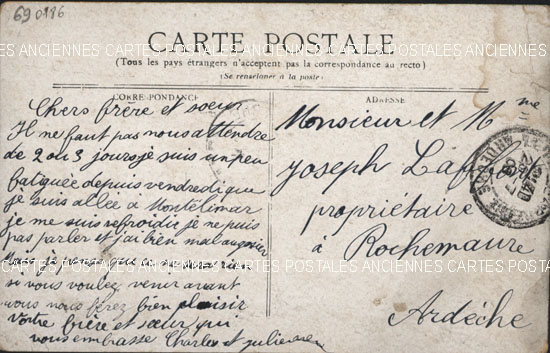 690186
CARTE POSTALE
CARTES POSTALES ANCIENNES CARTES POSTALES ANCIENNES CARTES POSTALES ANCIENNES
(Tous les pays étrangers n'acceptent pas la correspondance au recto)
(Se renseigner à la poste)
CORRESPONDANCE
Chers frère et sœur
Il ne faut pas nous attendre
de 2 ou 3 jours je suis un peu
fatiguée depuis vendredi que
je suis allée a Montélimar
je me suis refroidie je ne puis
pas parler et j'ai bien mal au gosier
si vous voulez venir avant
vous nous ferez bien plaisir
votre frère et sœur qui
vous embrasse Charles et julienne
ADRESSE
Monsieur et Mme
joseph
propriétaire
à Rochemaure
Ardèche